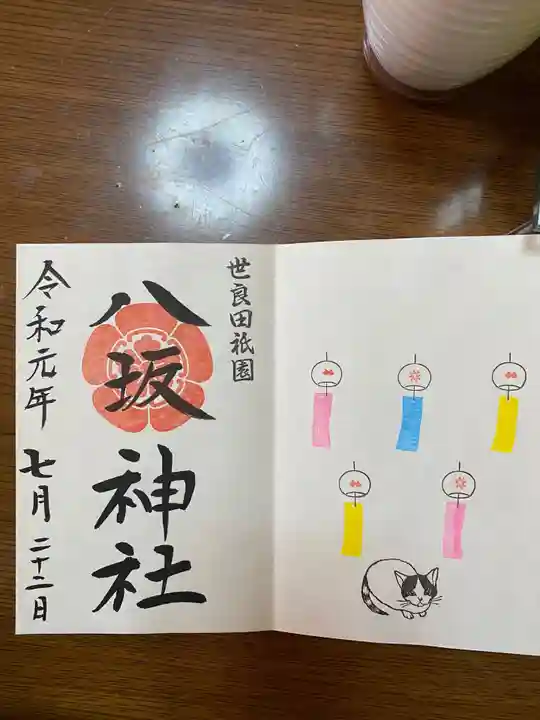 世良田祇園
八坂神社
令和元年七月二十二日